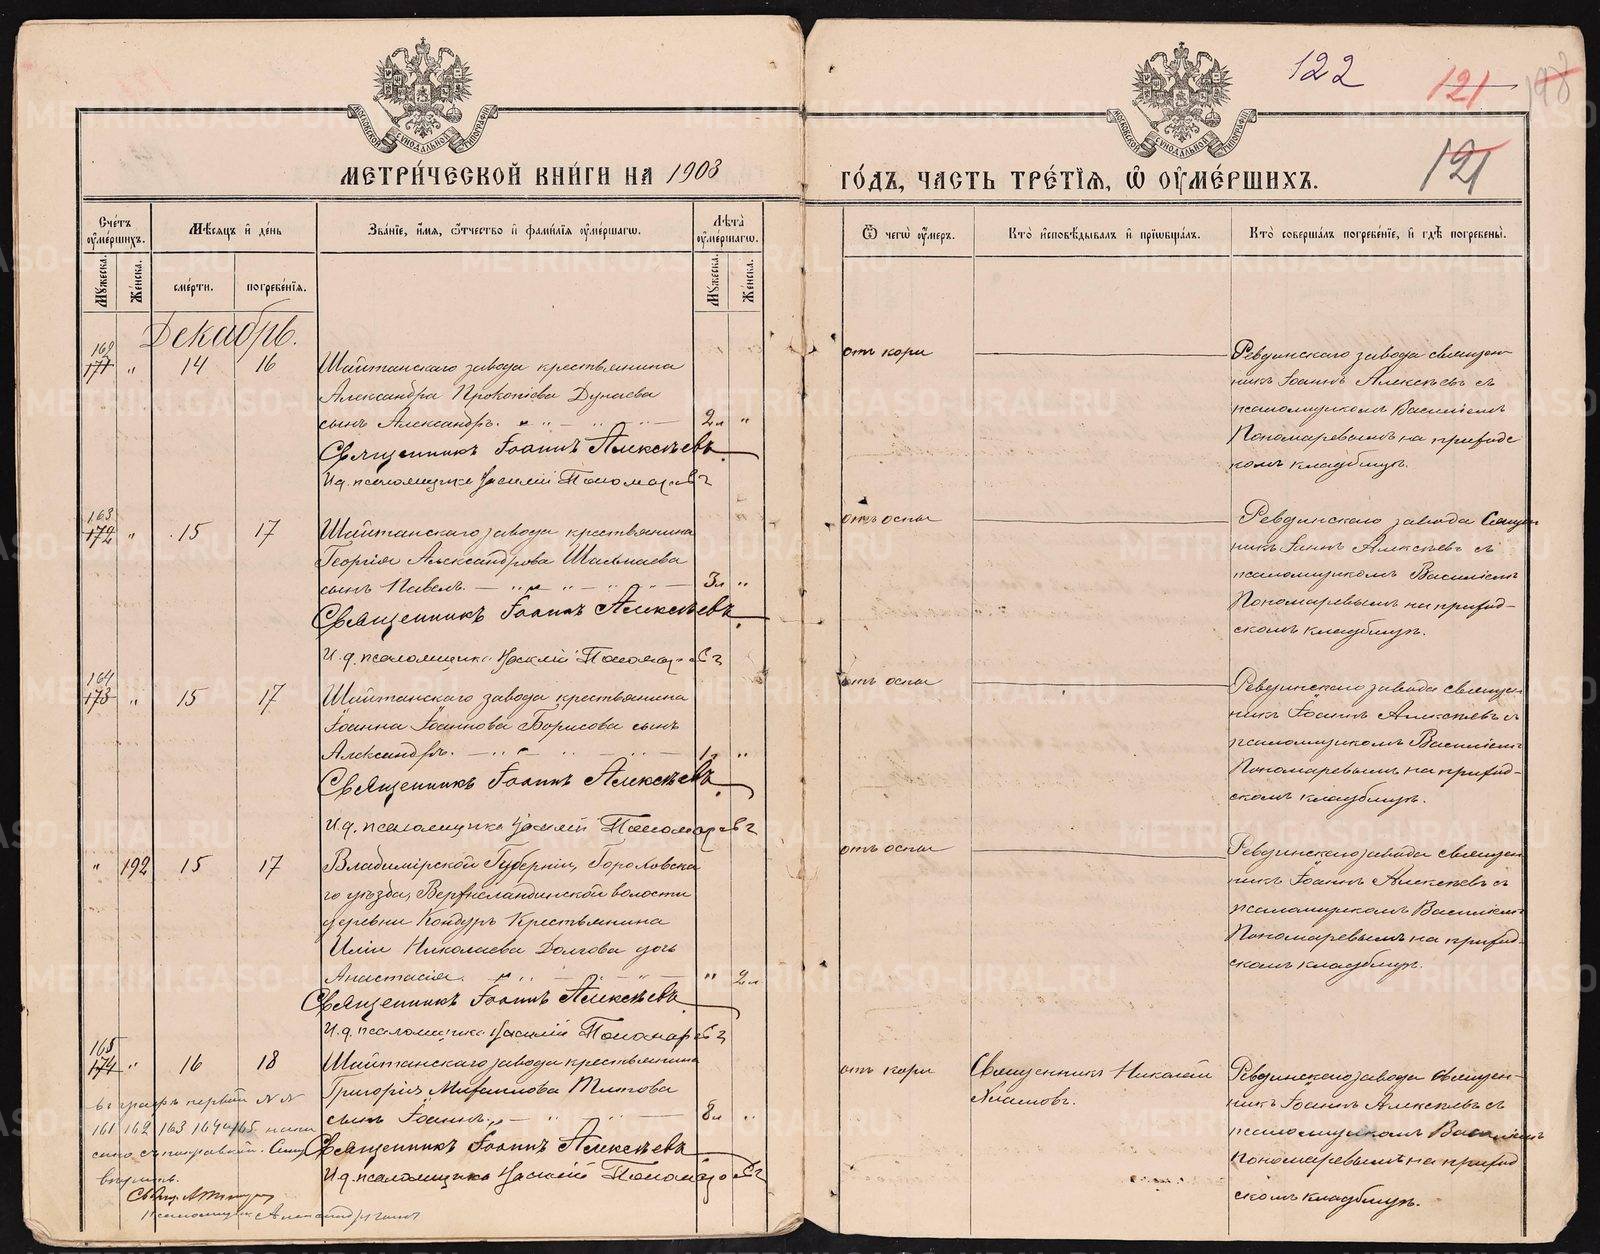 122
121
121
МЕТРИ́ЧЕСКОЙ КНИ́ГИ НА 1903
ГО́ДЪ, ЧАСТЬ ТРЕ́ТІѦ, Ѡ҆ ОУ҆МЕ́РШИХЪ.
Сче́тъ оу҆ме́ршихъ.
Мѣ́сѧцъ и҆ де́нь
Зва́нїе, и҆́мѧ, ѻ҆́тчество и҆ фами́лїѧ оу҆ме́ршагѡ.
Лѣ́та оу҆ме́ршагѡ.
Ѿ чегѡ̀ оу҆́меръ.
Кто̀ и҆сповѣ́дывалъ и҆ прїѡбща́лъ.
Кто̀ соверша́лъ погребе́нїе, и҆ гдѣ̀ погребены̀.
Мꙋ́жеска.
Же́нска.
сме́рти.
погребе́нїѧ.
Мꙋ́жеска.
Же́нска.
Декабрь.
169
171 " 14 16 Шайтанскаго завода крестьянина
Александра Прокопіева Дунаева
сынъ Александръ. 2л "
Священникъ Іоаннъ Алексѣевъ
И.д. псаломщика Василій Пономаревъ
отъ кори
Ревдинскаго завода священ
никъ Іоаннъ Алексѣевъ съ
псаломщикомъ Василіемъ
Пономаревымъ на приход
скомъ кладбищѣ.
163
172 " 15 17 Шайтанскаго завода крестьянина
Георгія Александрова Шальпаева
сынъ Павелъ. 3л "
Священникъ Іоаннъ Алексѣевъ
И.д. псаломщика Василій Пономаревъ
отъ оспы
Ревдинскаго завода Священ
никъ Іоаннъ Алексѣевъ съ
псаломщикомъ Василіемъ
Пономаревымъ на приход-
скомъ кладбищѣ.
164
173 " 15 17 Шайтанскаго завода крестьянина
Іоанна Іоаннова Борисова сынъ
Александръ. 1л "
Священникъ Іоаннъ Алексѣевъ
И.д. псаломщика Василій Пономаревъ
отъ оспы
Ревдинскаго завода священ
никъ Іоаннъ Алексѣевъ съ
псаломщикомъ Василіемъ
Пономаревымъ на приход-
скомъ кладбищѣ.
" 192 15 17 Владимірской Губерніи, Гороховска
го уѣзда, Верхнеландинской волости
деревни Кондуръ Крестьянина
Иліи Николаева Долгова дочь
Анастасія. " 2л
Священникъ Іоаннъ Алексѣевъ
И.д. псаломщика Василій Пономаревъ
отъ оспы
Ревдинскаго завода священ
никъ Іоаннъ Алексѣевъ съ
псаломщикомъ Василіемъ
Пономаревымъ на приход-
скомъ кладбищѣ.
165
174 " 16 18 Шайтанскаго завода крестьянина
Григорія Михаилова Титова
сынъ Іоаннъ. 8л "
Священникъ Іоаннъ Алексѣевъ
И.д. псаломщика Василій Пономаревъ
отъ кори
Священникъ Николай
Ревдинскаго завода священ-
никъ Іоаннъ Алексѣевъ съ
псаломщикомъ Василіемъ
Пономаревымъ на приход
скомъ кладбищѣ.
въ графѣ первой №№
161 162 163 164 и 165 напи
сано съ поправкой.
вѣрить.
псаломщикъ